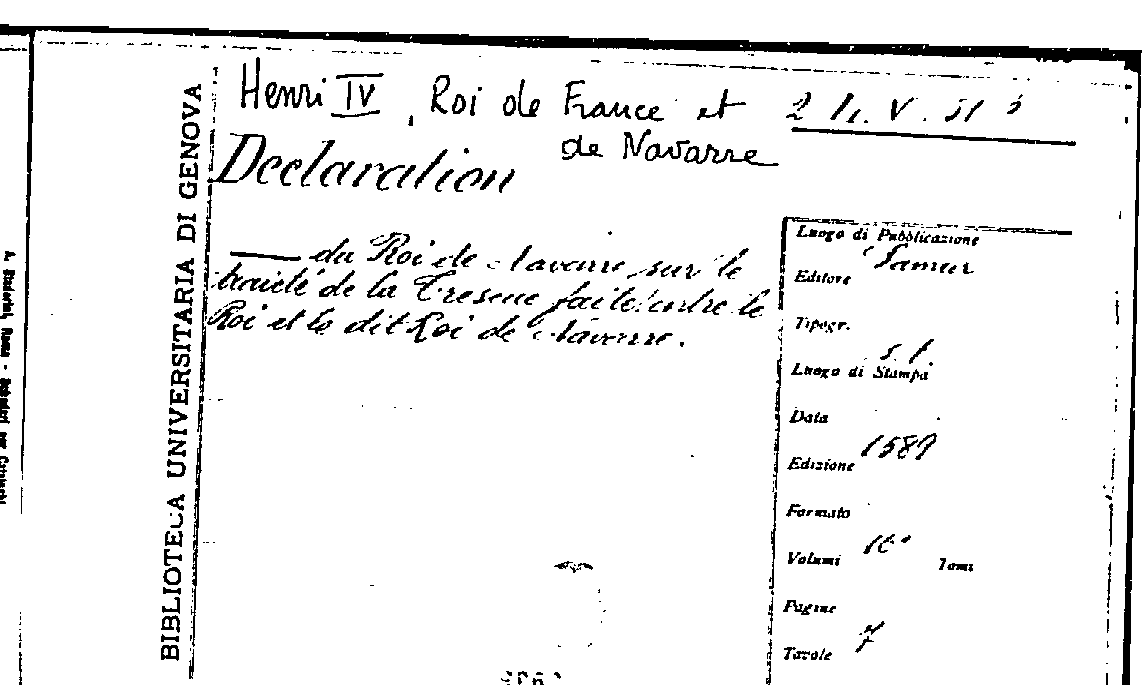 BIBLIOTECA UNIVERSITARIA DI GENOVA
Henri IV, Roi de France et
de Navarre
2 h. V. 51
Declaration
— du Roi de Navarre sur le
traicté de la Tresve faite entre le
Roi et le dit Roi de Navarre.
Luogo di Pubblicazione
Samur
Editore
Tipogr.
s. l.
Luogo di Stampa
Data
1589
Edizione
Formato
16°
Volumi Tomi
Pagine
7
Tavole